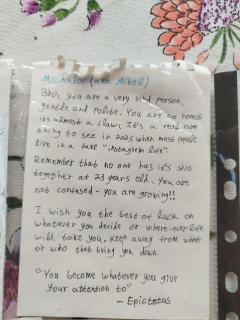 Michajor (aka Mikol)
Bro, you are a very kind person,
gentle and polite. You are so honest
its almost a flaw. It's a real rare
thing to see in 2023 when most people
live in a fake "instagram life".
Remember that no one has it's shit
together at 23 years old. You are
not confused - you are growing!!
I wish you the best of luck on
whatever you decide or where-ever life
will take you. Keep away from what
or who that bring you down.
"You become whatever you give
your attention to"
- Epictotus